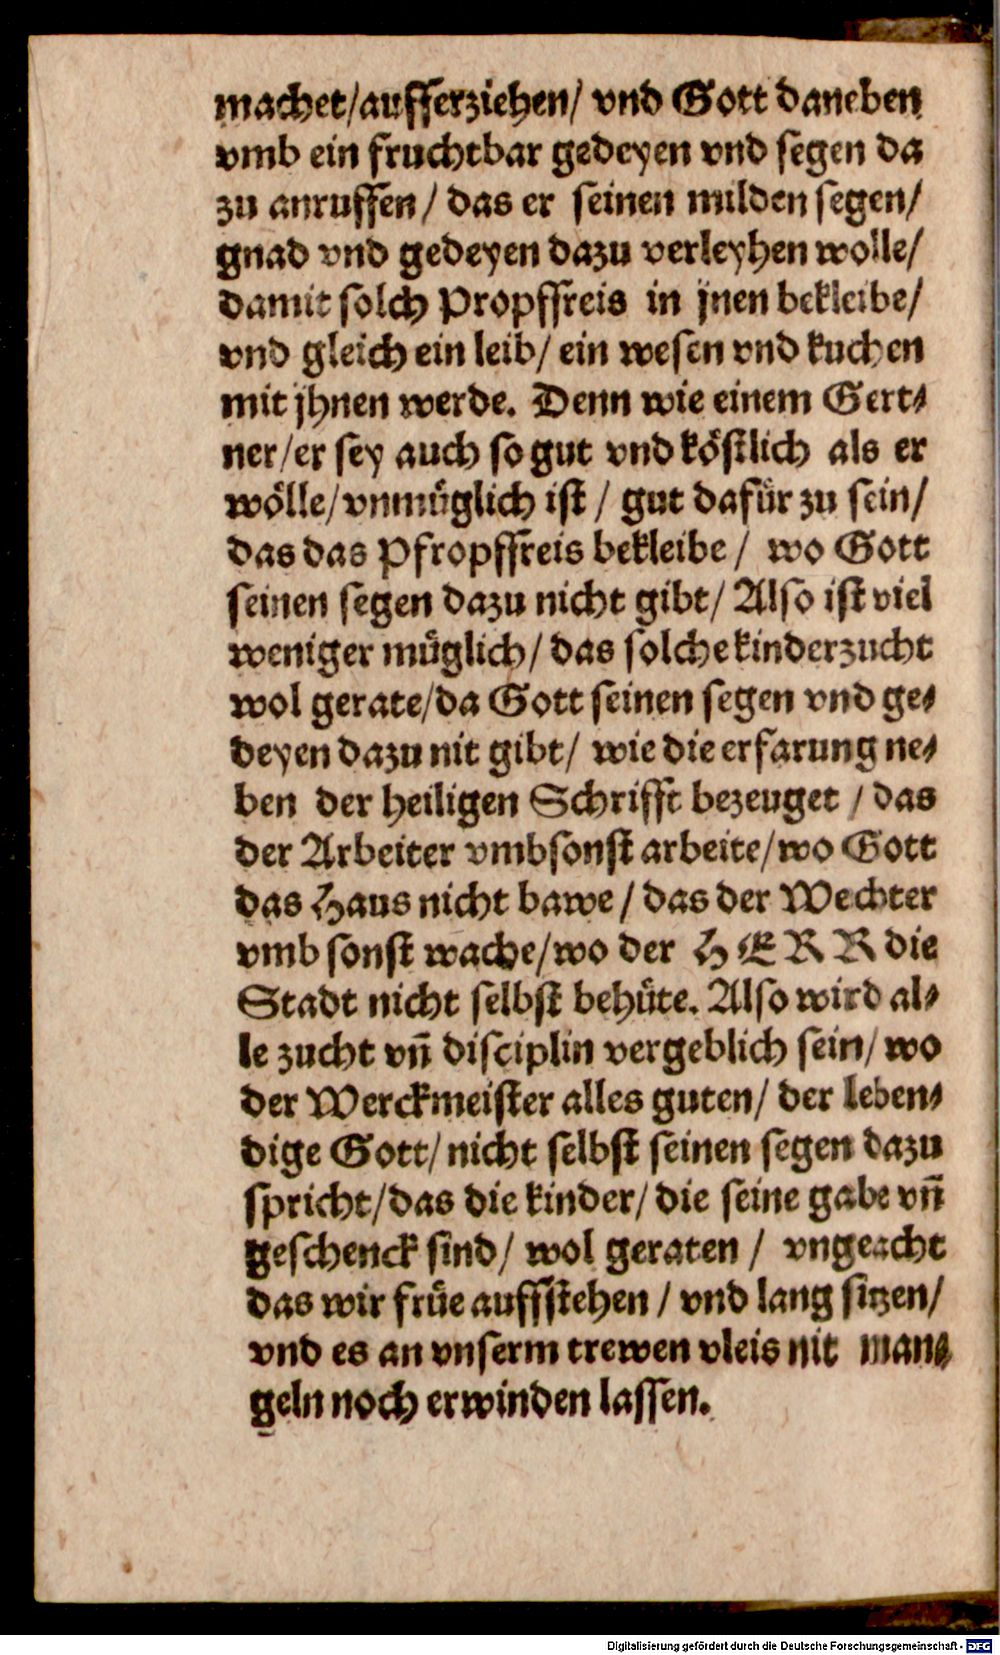 machet/aufferziehen/ vnd Gott daneben
vmb ein fruchtbar gedeyen vnd segen da
zu anruffen / das er seinen milden segen/
gnad vnd gedeyen dazu verleyhen wolle/
damit solch Propffreis in jnen bekleibe/
vnd gleich ein leib/ ein wesen vnd kuchen
mit jhnen werde. Denn wie einem Gert⸗
ner/er sey auch so gut vnd köstlich als er
wölle/vnmüglich ist / gut dafür zu sein/
das das Pfropffreis bekleibe / wo Gott
seinen segen dazu nicht gibt/ Also ist viel
weniger müglich/ das solche kinderzucht
wol gerate/da Gott seinen segen vnd ge⸗
deyen dazu nit gibt/ wie die erfarung ne⸗
ben der heiligen Schrifft bezeuget / das
der Arbeiter vmbsonst arbeite/wo Gott
das Haus nicht bawe / das der Wechter
vmb sonst wache/wo der HERR die
Stadt nicht selbst behüte. Also wird al⸗
le zucht vñ disciplin vergeblich sein/ wo
der Werckmeister alles guten/ der leben⸗
dige Gott/ nicht selbst seinen segen dazu
spricht/das die kinder/ die seine gabe vñ
geschenck sind/ wol geraten / vngeacht
das wir früe auffstehen / vnd lang sitzen/
vnd es an vnserm trewen vleis nit man⸗
geln noch erwinden lassen.
Digitalisierung gefördert durch die Deutsche Forschungsgemeinschaft - DFG